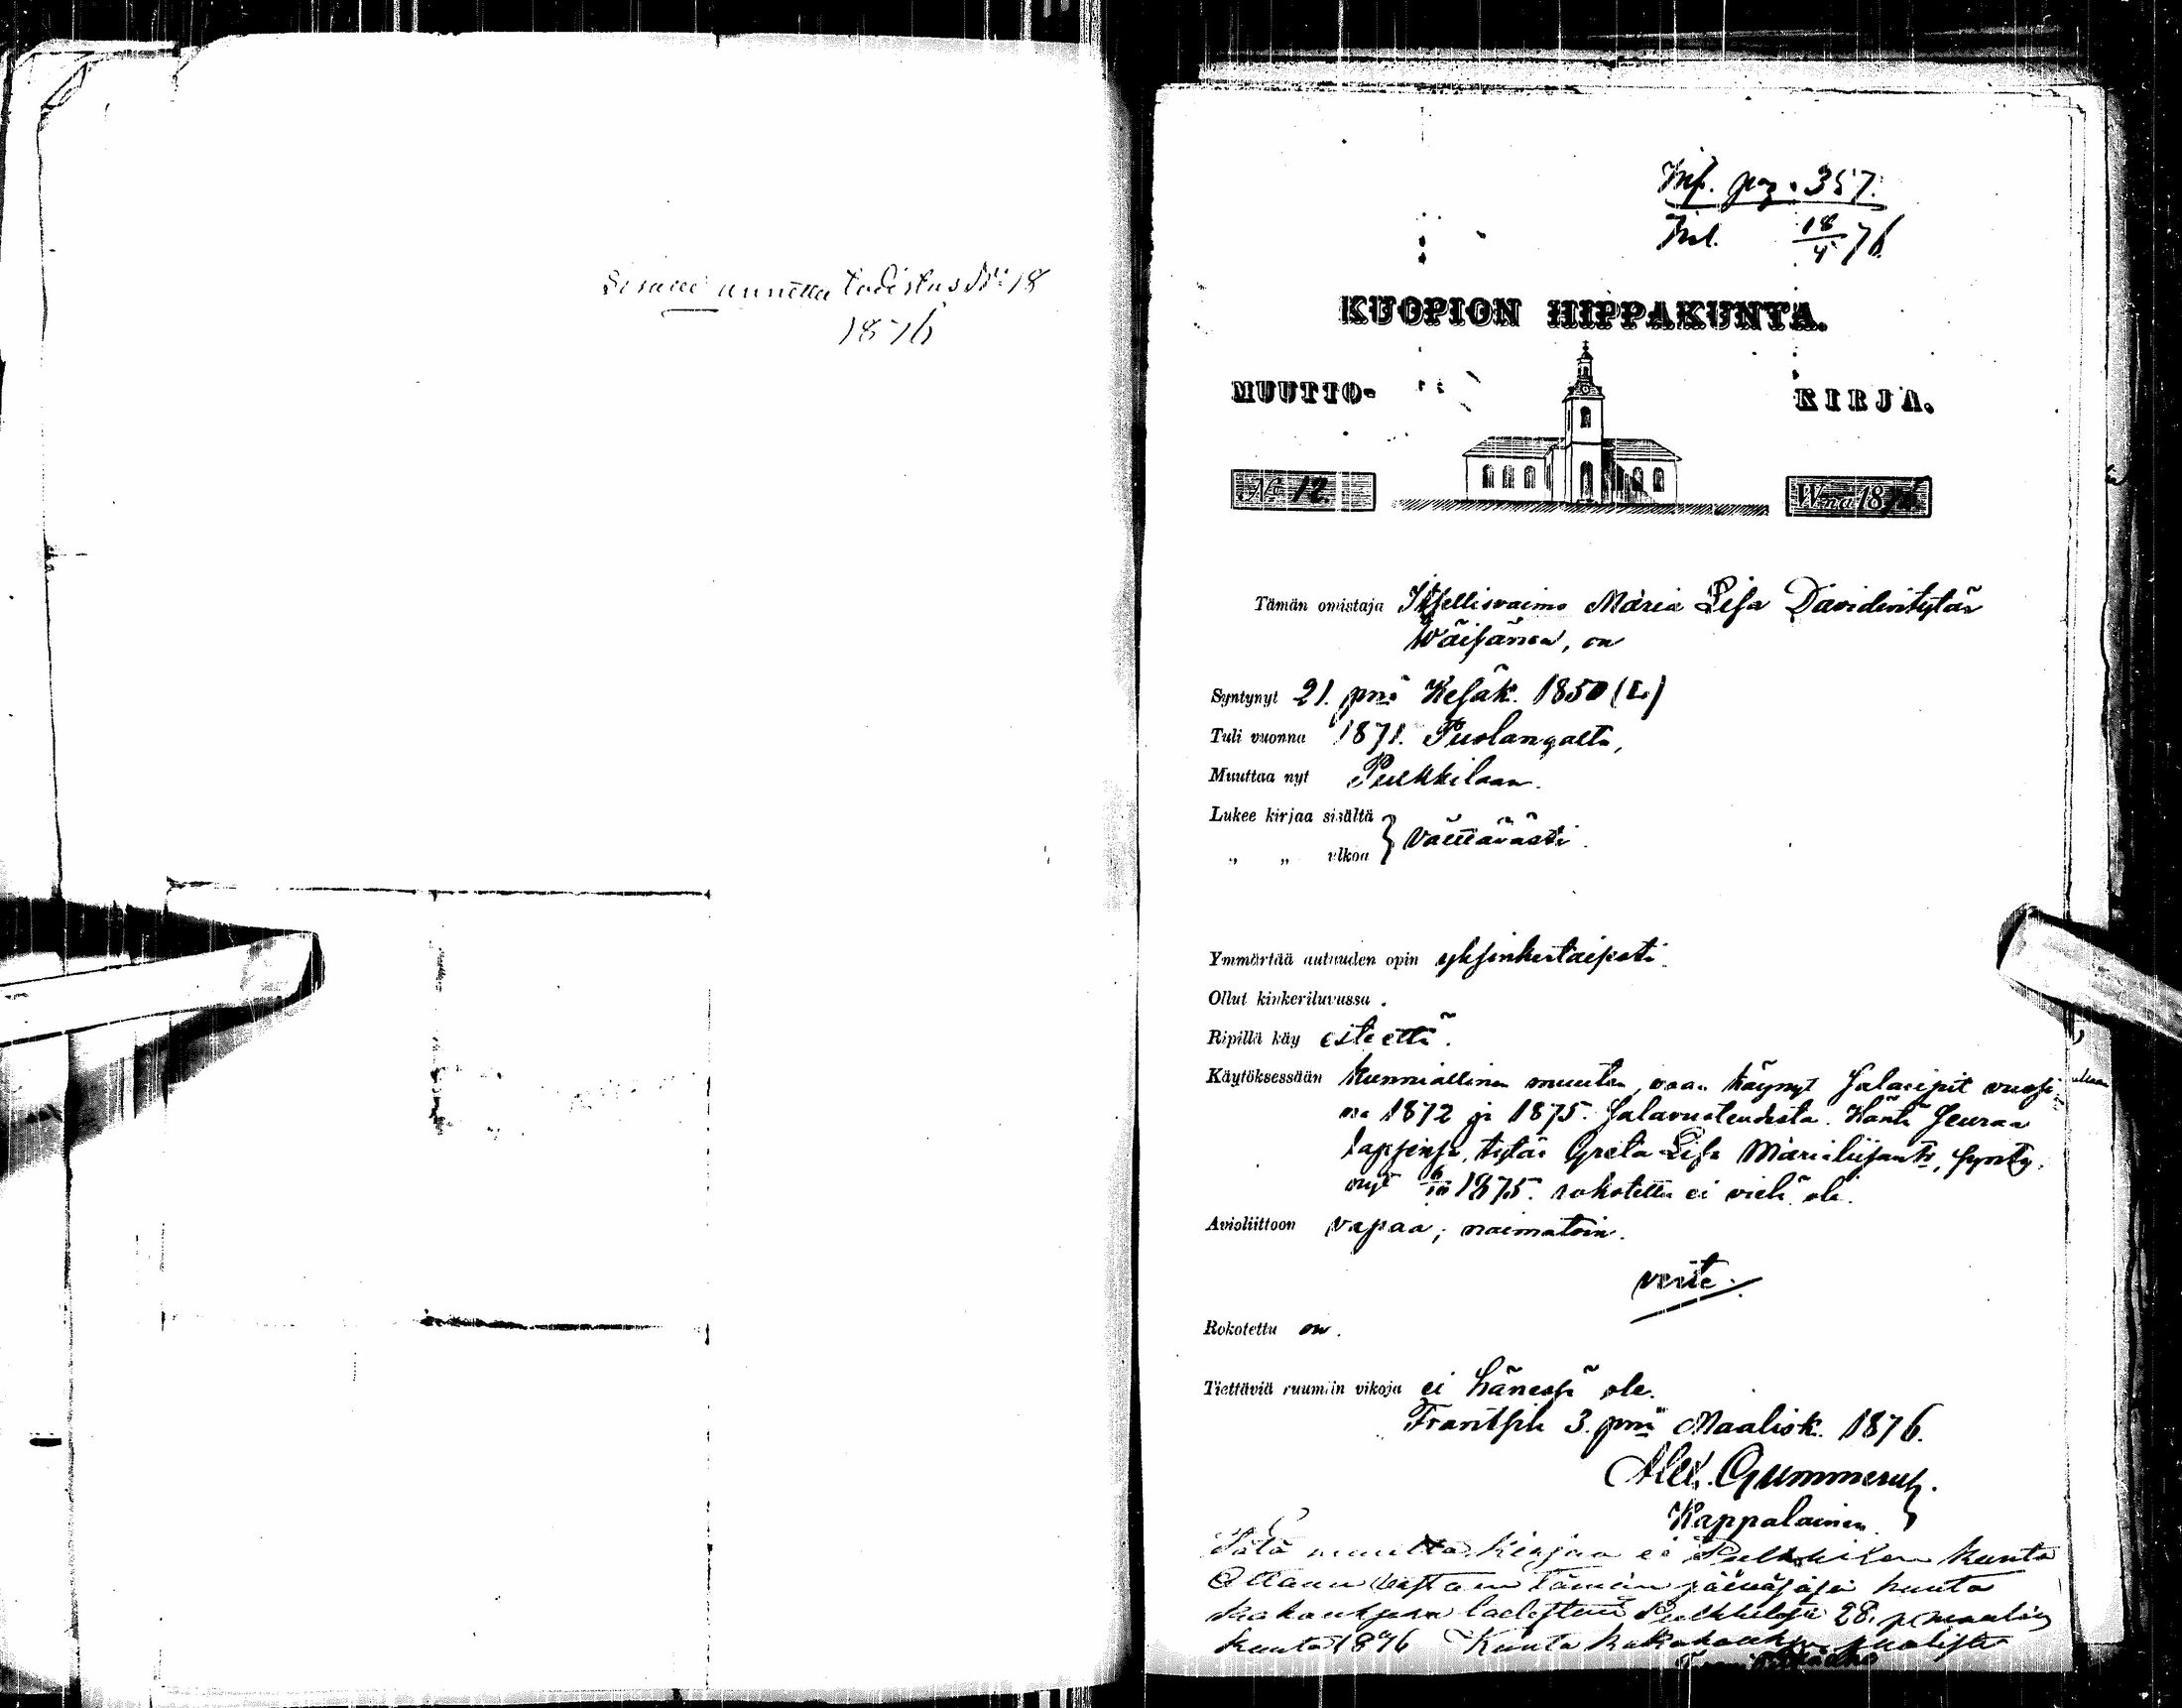 Sisään muutto todistus No 18
1876
Inf. pag. 357.
Inl. 18/4 76.
KUOPION HIPPAKUNTA.
MUUTTO- KIRJA.
No 12. W:na 1876.
Tämän omistaja Itsellisvaimo Maria Lisa Davidintytär
Wäisänen, on
Syntynyt 21. pnä Kesäk. 1850 (L)
Tuli vuonna 1871. Puolangalta,
Muuttaa nyt Pulkkilaan.
Lukee kirjaa sisältä } välttävästi.
„ „ ulkoa
Ymmärtää autuuden opin yksinkertaisesti.
Ollut kinkeriluvussa .
Ripillä käy esteettä.
Käytöksessään kunniallinen muuten, vaan käynyt salaripit vuosi-
na 1872 ja 1875 salavuoteudesta. Häntä seuraa
lapsensa, tytär Greta Lisa Marialiisant:r, synty-
nyt 1875. rokotettu ei vielä ole.
Avioliittoon vapaa; naimatoin.
verte.
Rokotettu on.
Tiettäviä ruumiin vikoja ei hänessä ole.
Frantsila 3. pnä Maalisk. 1876.
Alex. Gummerus.
Kappalainen.
Tätä muutto kirjaa ei Pulkkilan kunta
Ottanu vastaan tämän päiväsäsä kunta
kokouksesa Pulkkilasa 28. p maalis
kuuta 1876 Kunta kokouksen puolesta